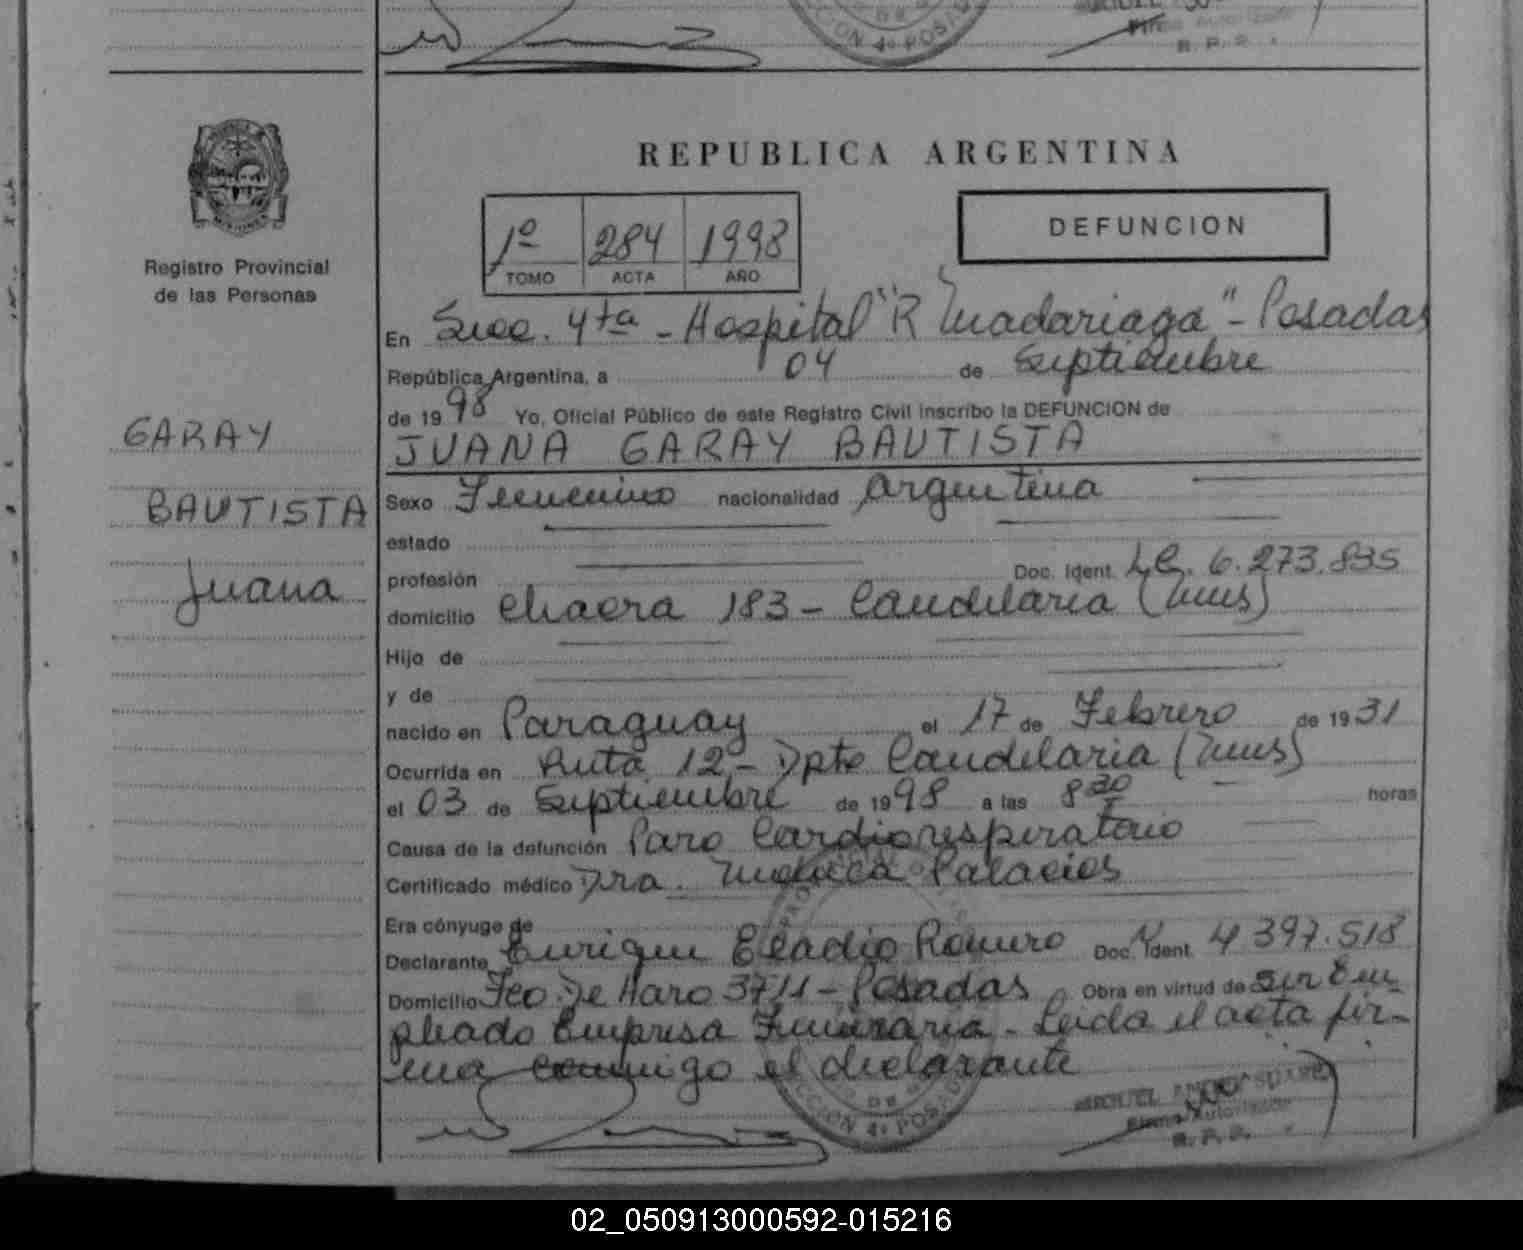 CCION 4º POSAD
R. P. P.
REPUBLICA ARGENTINA
1º 284 1998
TOMO ACTA AÑO
DEFUNCION
Registro Provincial
de las Personas
GARAY
BAUTISTA
Juana
En Secc. 4ta - Hospital "R Madariaga" - Posadas
República Argentina, a 04 de Septiembre
de 1998 Yo, Oficial Público de este Registro Civil inscribo la DEFUNCION de
JUANA GARAY BAUTISTA
Sexo Femenino nacionalidad Argentina
estado
profesión Doc. Ident. L.C. 6.273.835
domicilio Chacra 183 - Candelaria (Mnes)
Hijo de
y de
nacido en Paraguay el 17 de Febrero de 1931
Ocurrida en Ruta 12 - Dpto Candelaria (Mnes)
el 03 de Septiembre de 1998 a las 8 30 horas
Causa de la defunción Paro Cardiorespiratorio
Certificado médico Dra. Palacios
Era cónyuge de
Declarante Enrique Eladio Romero Doc. Ident. 4 397.518
Domicilio Fco. De Haro 3711 - Posadas Obra en virtud de ser Em-
pleado Empresa Funeraria - Leida el acta fir-
ma conmigo el declarante
CCION 4º POSAD
MIGUEL
Firma Autorizada
R. P. P.
02_050913000592-015216